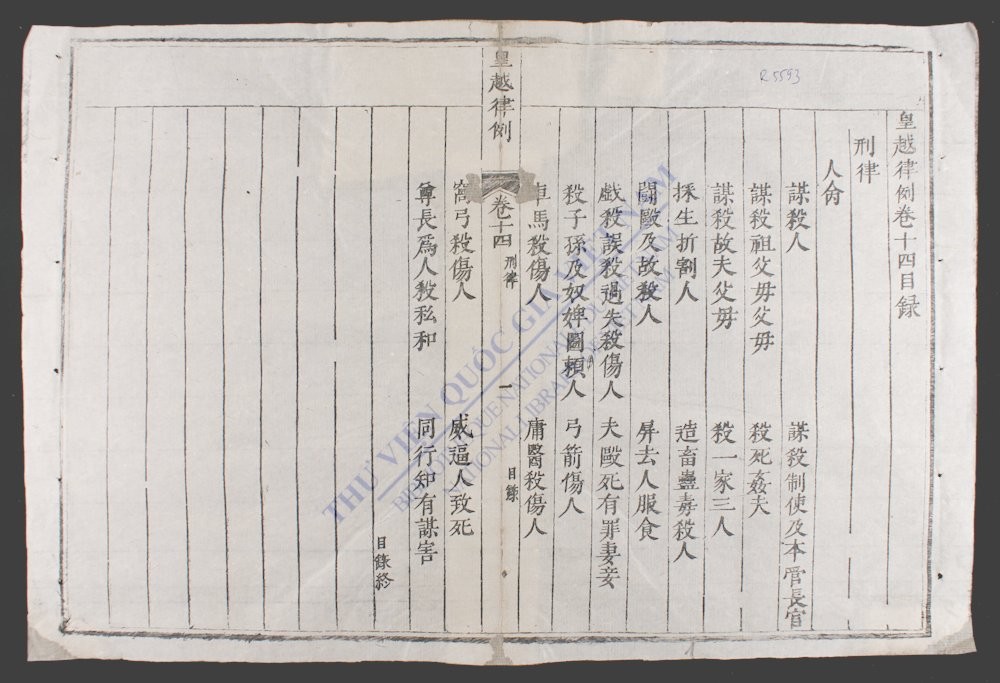 皇越律例卷十四目録
刑律
人命
謀殺人 謀殺制使及本管長官
謀殺祖父毋父毋 殺死姦夫
謀殺故夫父毋 殺一家三人
採生折割人 造畜蠱毒殺人
鬪毆及故殺人 屏去人服食
戲殺誤殺過失殺傷人 夫毆死有罪妻妾
殺子孫及奴婢圖頼人 弓箭傷人
車馬殺傷人 庸醫殺傷人
皇越律例 卷十四 刑律 一 目錄
窩弓殺傷人 威逼人致死
尊長爲人殺私和 同行知有謀害
目錄終
R.5593
THƯ VIỆN QUỐC GIA VIỆT NAM